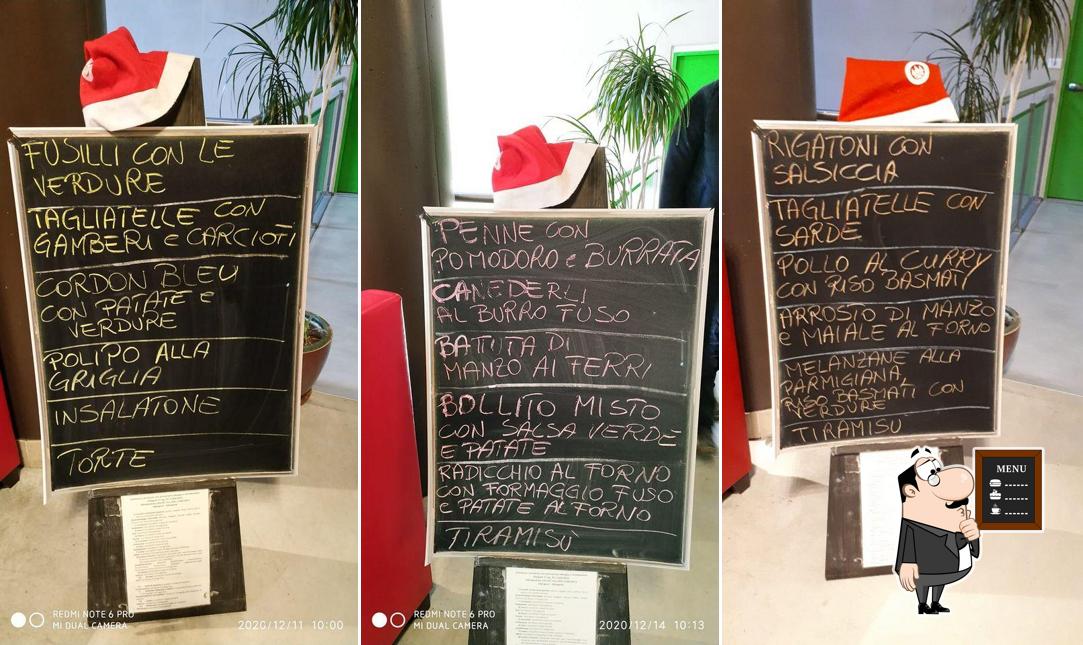 FUSILLI CON LE
VERDURE
TAGLIATELLE CON
GAMBERI e CARCIOFI
CORDON BLEU
CON PATATE e
VERDURE
POLIPO ALLA
GRIGLIA
INSALATONE
TORTE
REDMI NOTE 6 PRO
MI DUAL CAMERA
2020/12/11 10:00
PENNE CON
POMODORO e BURRATA
CANEDERLI
AL BURRO FUSO
BATUTA DI
MANZO AI FERRI
BOLLITO MISTO
CON SALSA VERDE
E PATATE
RADICCHIO AL FORNO
CON FORMAGGIO FUSO
e PATATE AL FORNO
TIRAMISÙ
REDMI NOTE 6 PRO
MI DUAL CAMERA
2020/12/14 10:13
RIGATONI CON
SALSICCIA
TAGLIATELLE CON
SARDE
POLLO AL CURRY
CON RISO BASMATI
ARROSTO DI MANZO
e MAIALE AL FORNO
MELANZANE ALLA
PARMIGIANA,
RISO BASMATI CON
VERDURE
TIRAMISU
MENU